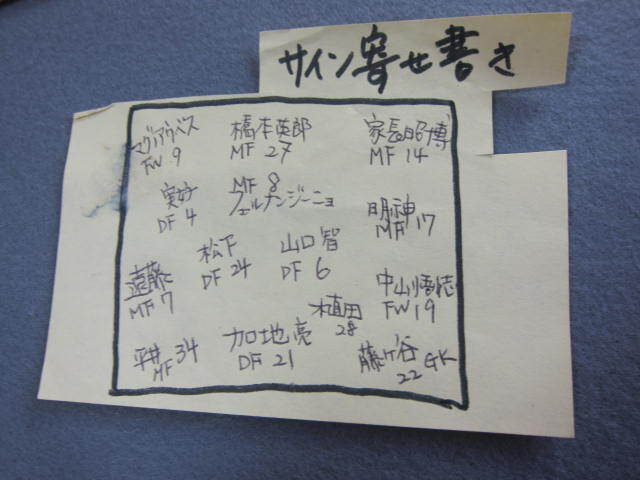 サイン寄せ書き
マグノアウベス
FW 9
橋本英郎
MF 27
家長昭博
MF 14
実好
DF 4
MF 8
フェルナンジーニョ
明神
MF 17
松下
DF 24
山口智
DF 6
遠藤
MF 7
中山悟志
FW 19
植田
28
平井 34
MF
加地亮
DF 21
藤ヶ谷
22 GK